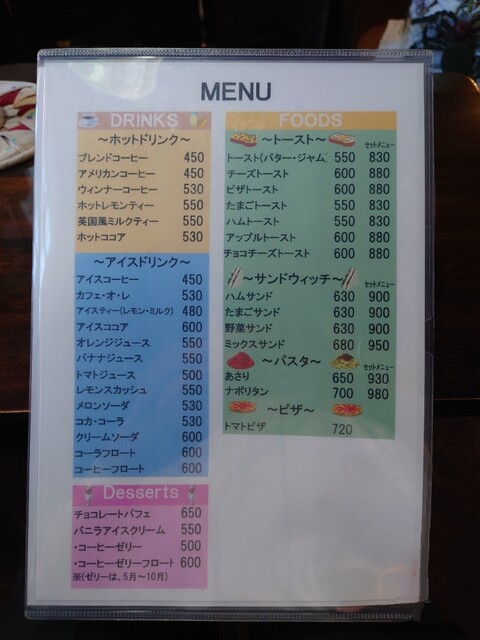 MENU
DRINKS
～ホットドリンク～
ブレンドコーヒー 450
アメリカンコーヒー 450
ウィンナーコーヒー 530
ホットレモンティー 550
英国風ミルクティー 550
ホットココア 530
～アイスドリンク～
アイスコーヒー 450
カフェ・オ・レ 530
アイスティー(レモン・ミルク) 480
アイスココア 600
オレンジジュース 550
バナナジュース 550
トマトジュース 500
レモンスカッシュ 550
メロンソーダ 530
コカ・コーラ 530
クリームソーダ 600
コーラフロート 600
コーヒーフロート 600
Desserts
チョコレートパフェ 650
バニラアイスクリーム 550
・コーヒーゼリー 500
・コーヒーゼリーフロート 600
※(ゼリーは、5月～10月)
FOODS
～トースト～ セットメニュー
トースト(バター・ジャム) 550 830
チーズトースト 600 880
ピザトースト 600 880
たまごトースト 550 830
ハムトースト 550 830
アップルトースト 600 880
チョコチーズトースト 600 880
～サンドウィッチ～ セットメニュー
ハムサンド 630 900
たまごサンド 630 900
野菜サンド 630 900
ミックスサンド 680 950
～パスタ～ セットメニュー
あさり 650 930
ナポリタン 700 980
～ピザ～
トマトピザ 720